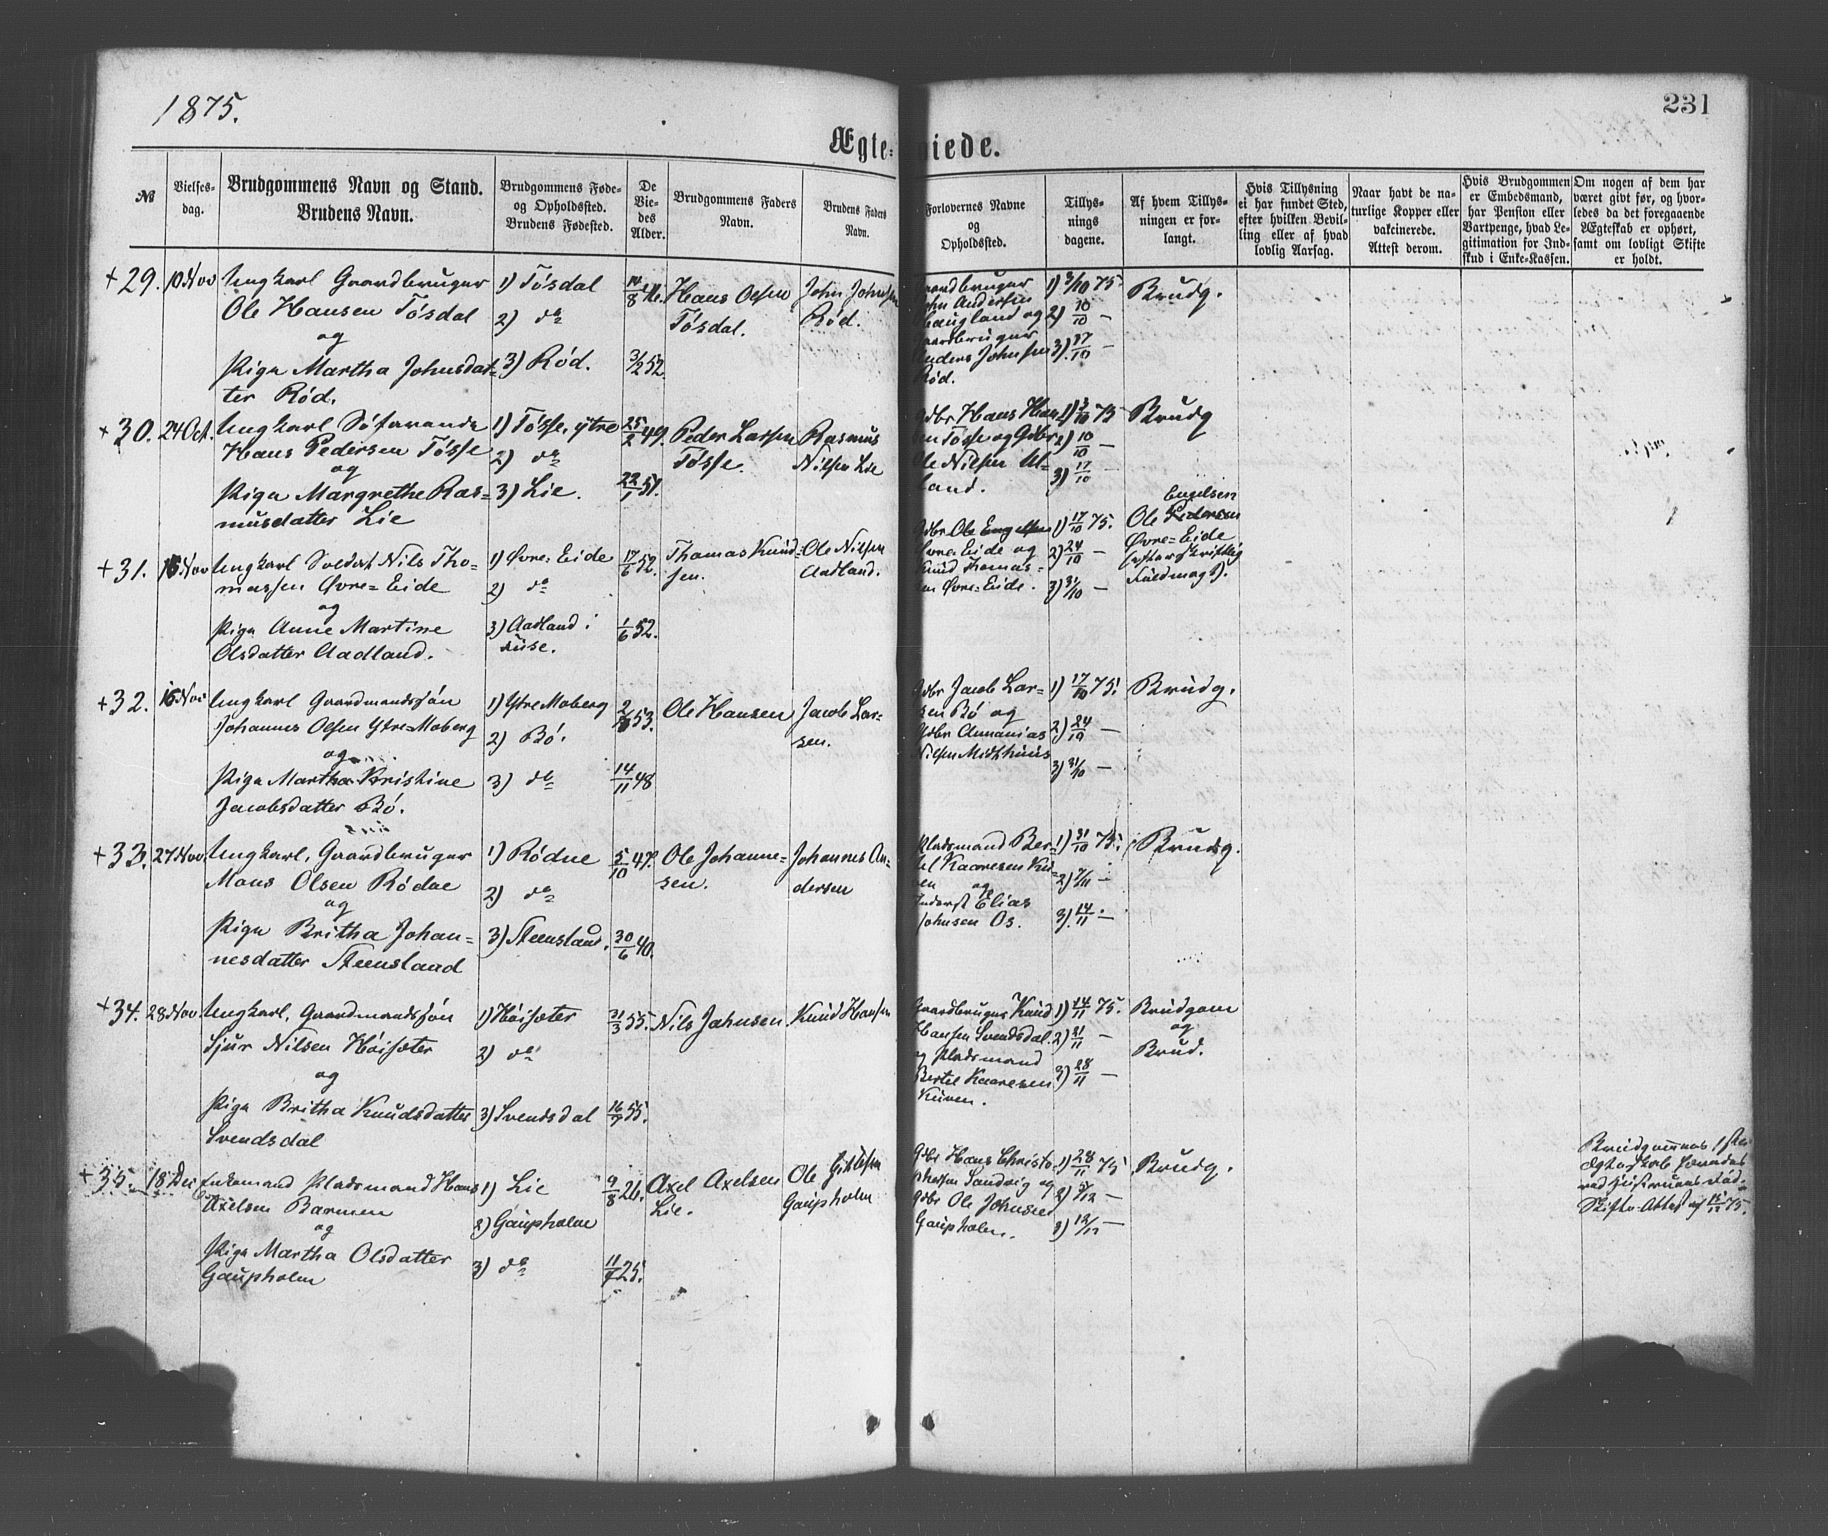 1875.
231
Ægte-
viede.
№
Vielses-
dag.
Brudgommens Navn og Stand.
Brudens Navn.
Brudgommens Føde-
og Opholdssted.
Brudens Fødested.
De
Vie-
des
Alder.
Brudgommens Faders
Navn.
Brudens Faders
Navn.
Forlovernes Navne
og
Opholdssted.
Tillys-
nings
dagene.
Af hvem Tillys-
ningen er for-
langt.
Hvis Tillysning
ei har fundet Sted,
efter hvilken Bevil-
ling eller af hvad
lovlig Aarsag.
Naar havt de na-
turlige Kopper eller
vakcinerede.
Attest derom.
Hvis Brudgommen
er Embedsmand,
har Pension eller
Vartpenge, hvad Le-
gitimation for Ind-
skud i Enke-Kassen.
Om nogen af dem har
været givt før, og hvor-
ledes da det foregaaende
Ægteskab er ophørt,
samt om lovligt Skifte
er holdt.
+29. 10 Nov
Ungkarl Gaardbruger
Ole Hansen Tøsdal
og
Pige Martha Johnsdat-
ter Rød.
1) Tøsdal
2) do
3) Rød.
14/8 46.
3/2 52.
Hans Olsen
Tøsdal.
John Johnsen
Rød.
Gaardbruger
John Andersen
Haugland og
Gaardbruger
Anders Johnsen
Rød.
1) 3/10 75.
2) 10/10 —
3) 17/10 —
Brudg.
+30. 24 Oct.
Ungkarl Søfarende
Hans Pedersen Tøsse
og
Pige Margrethe Ras-
musdatter Lie
1) Tøsse, ytre
2) do
3) Lie.
25/2 49.
22/1 51.
Peder Larsen
Tøsse.
Rasmus
Nilsen Lie
Gdbr. Hans Han-
sen Tøsse og Gdbr
Ole Nilsen Ul-
land.
1) 3/10 75
2) 10/10 —
3) 17/10
Brudg
+31. Nov
Ungkarl Soldat Nils Tho-
massen Øvre-Eide
og
Pige Anne Martine
Olsdatter Aadland.
1) Øvre-Eide
2) do
3) Aadland i
Fuse.
17/6 52.
1/6 52.
Thomas Knud-
sen.
Ole Nilsen
Aadland.
Gdbr Ole Engelsen
Øvre-Eide og
Knud Thomas-
sen Øvre-Eide.
1) 17/10 75.
2) 24/10 —
3) 31/10 —
Engelsen
Ole Pedersen
Øvre-Eide
(efter skriftlig
Fuldmagt).
+32. Nov
Ungkarl Gaardmandssøn
Johannes Olsen Ytre-Moberg
og
Pige Martha Kristine
Jacobsdatter Bø.
1) Ytre Moberg
2) Bø.
3) do
53.
14/11 48
Ole Hansen
Jacob Lar-
sen.
Gdbr Jacob Lar-
sen Bø og
Gdbr Annanias
Nilsen Midthuus
1) 17/10 75.
2) 24/10 —
3) 31/10 —
Brudg.
+33. 27 Nov.
Ungkarl, Gaardbruger
Mons Olsen Rødne
og
Pige Britha Johan-
nesdatter Steensland
1) Rødne
2) do
3) Steensland.
5/10 47.
30/6 40.
Ole Johanne-
sen.
Johannes An-
dersen
Pladsmand Ber-
tel Kaaresen Ku-
ven og
Inderst Elias
Johnsen Os.
1) 31/10 75.
2) 7/11 —
3) 14/11 —
Brudg.
+34. 28 Nov.
Ungkarl, Gaardmandssøn
Sjur Nilsen Høisæter
og
Pige Britha Knudsdatter
Svendsdal
1) Høisæter
2) do
3) Svendsdal
31/3 55.
55.
Nils Johnsen
Knud Hansen
Gaardbruger Knud
Hansen Svendsdal
og Pladsmand
Bertel Kaaresen
Kuven.
1) 14/11 75.
2) 21/11 —
3) 28/11 —
Brudgom
og
Brud.
+35. 18 Dec
Enkemand Pladsmand Hans
Axelsen Barmen
og
Pige Martha Olsdatter
Gaupholm
1) Lie
2) Gaupholm
3) do
9/8 26.
25.
Axel Axelsen
Lie.
Ole
Gaupholm
Gdbr Hans Christo-
phersen Sandvig og
Gdbr Ole Johnsen
Gaupholm.
1) 28/11 75
2) 5/12 —
3) 12/12 —
Brudg.
Brudgommens 1ste
Ægteskab hævedes
ved Hustruens Død-
Skifte-Attest af 75.